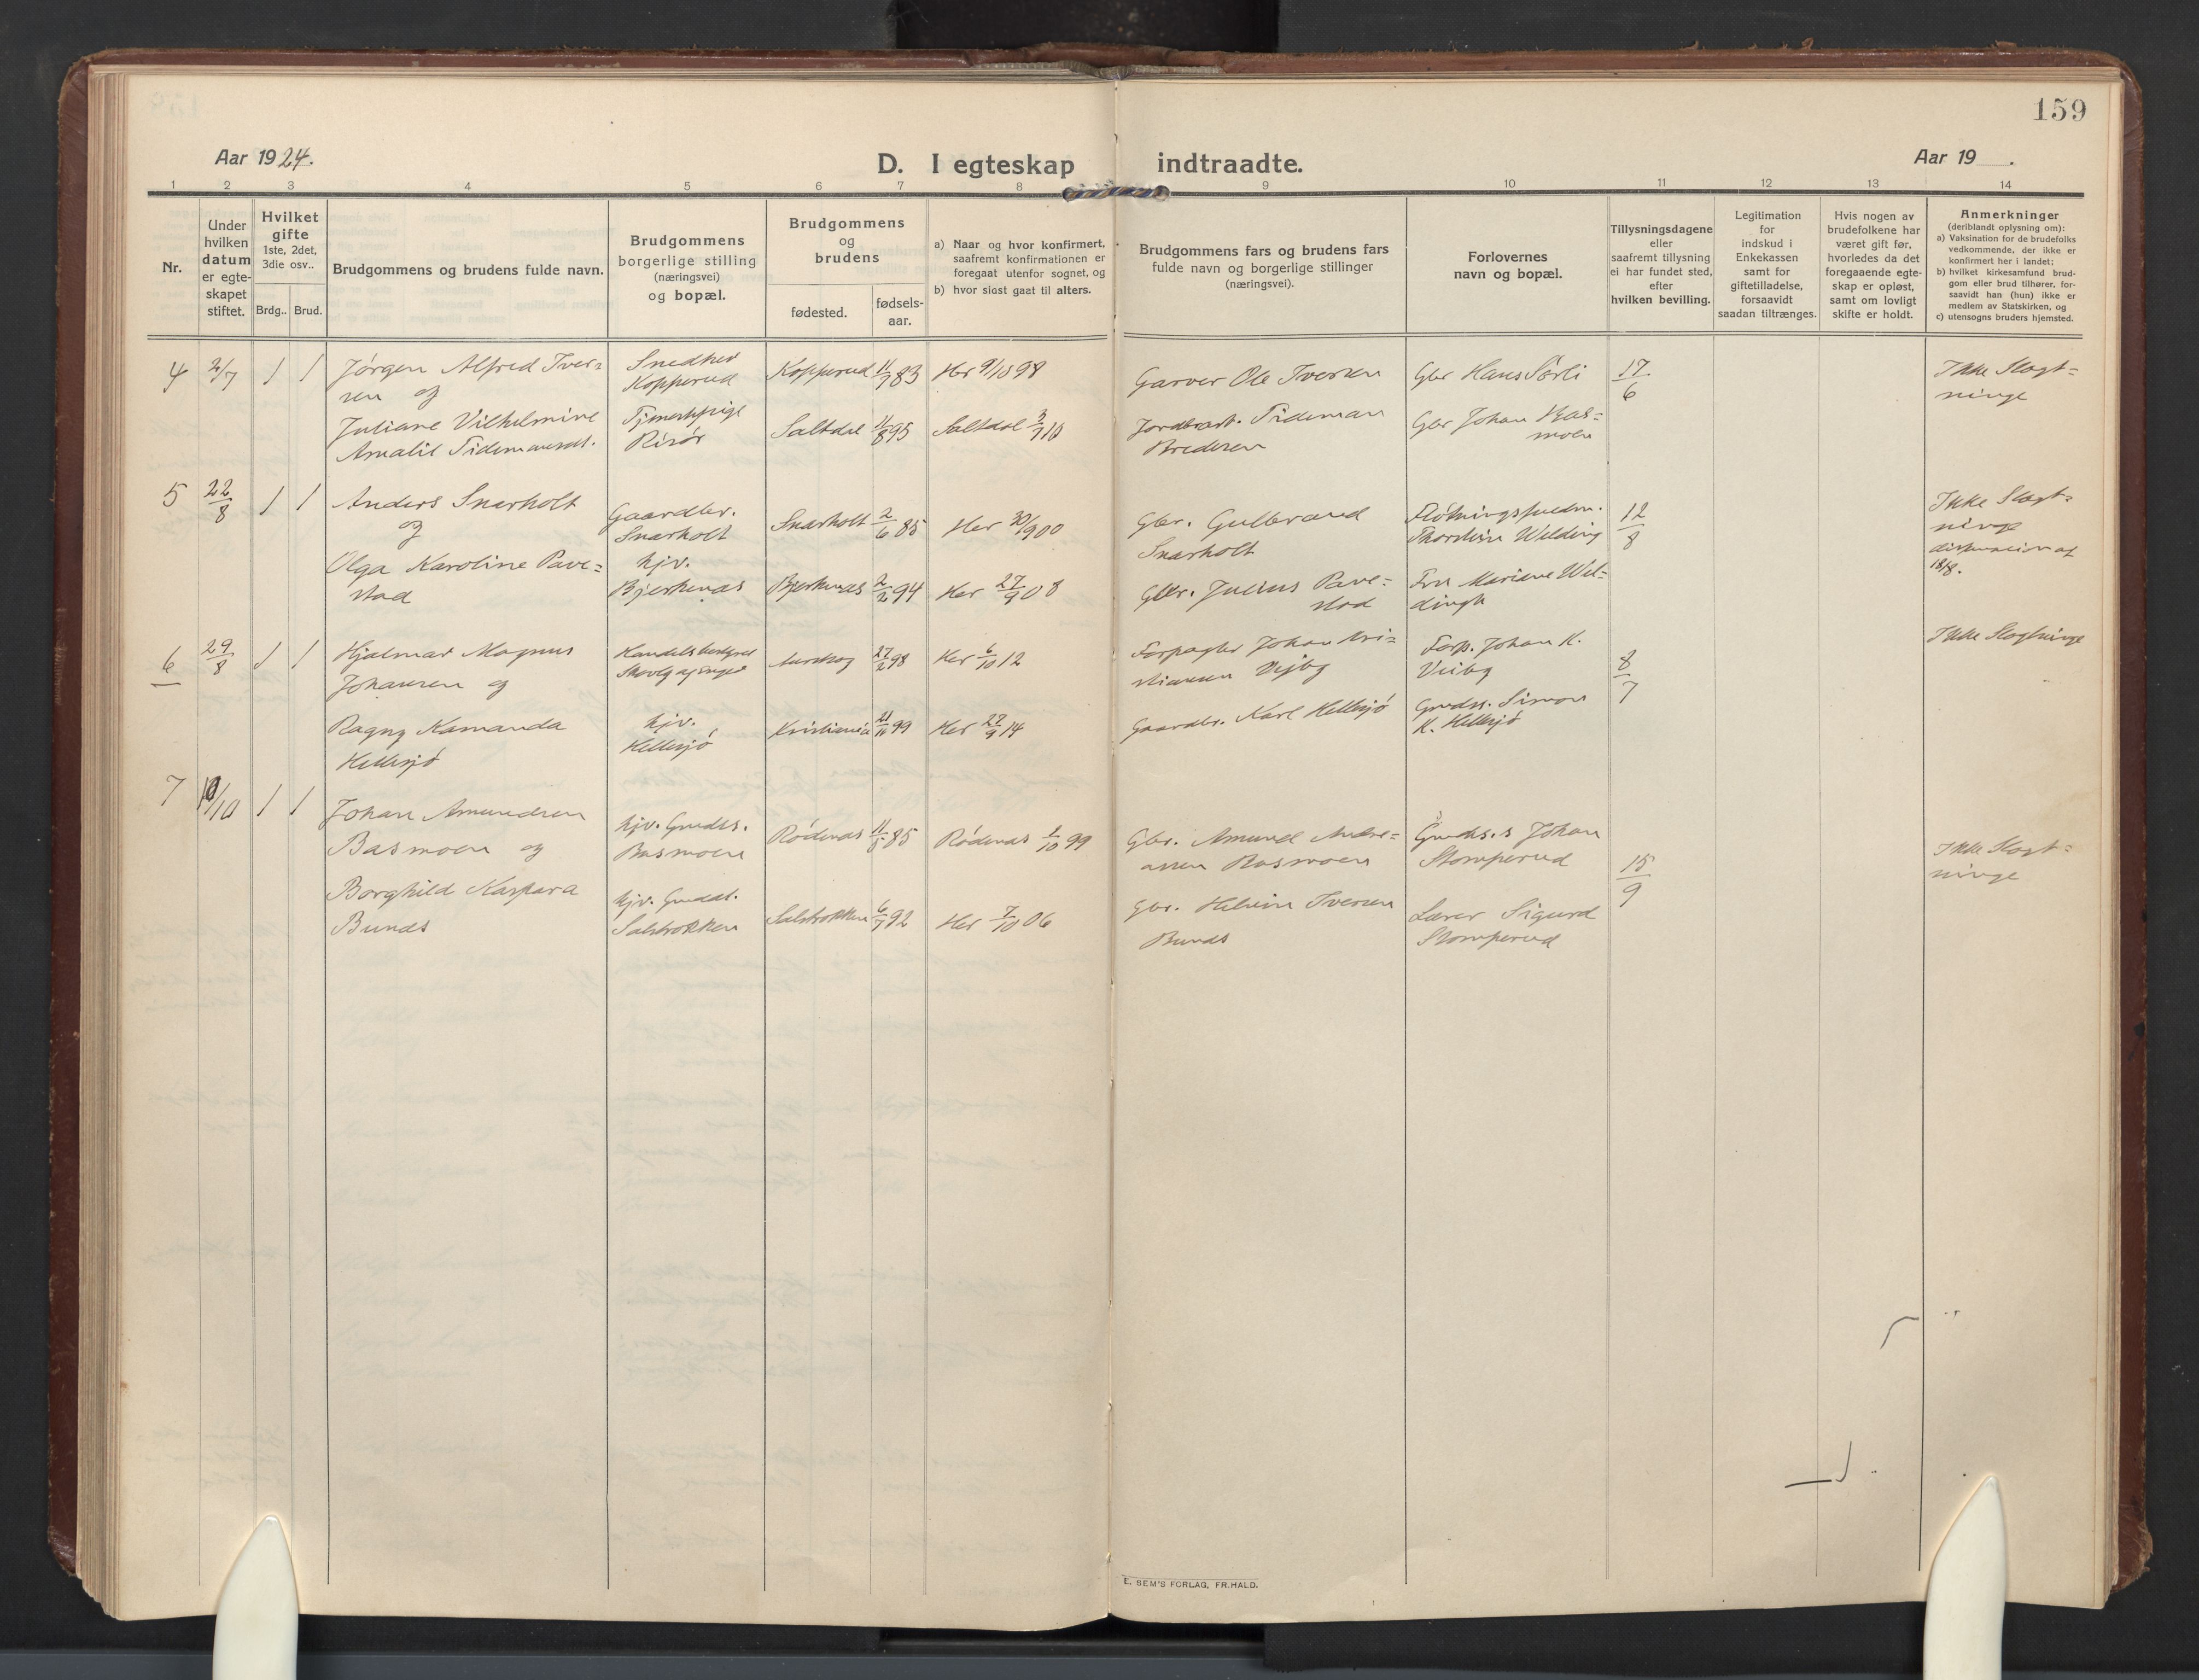 159
Aar 1924.
D. I egteskap indtraadte.
Aar 19 .
1 2 3 4 5 6 7 8 9 10 11 12 13 14
Nr.
Under
hvilken
datum
er egte-
skapet
stiftet.
Hvilket
gifte
1ste, 2det,
3die osv..
Brdg.. Brud.
Brudgommens og brudens fulde navn.
Brudgommens
borgerlige stilling
(næringsvei)
og bopæl.
Brudgommens
og
brudens
fødested.
fødsels-
aar.
a) Naar og hvor konfirmert,
saafremt konfirmationen er
foregaat utenfor sognet, og
b) hvor sidst gaat til alters.
Brudgommens fars og brudens fars
fulde navn og borgerlige stillinger
(næringsvei).
Forlovernes
navn og bopæl.
Tillysningsdagene
eller
saafremt tillysning
ei har fundet sted,
efter
hvilken bevilling.
Legitimation
for
indskud i
Enkekassen
samt for
giftetilladelse,
forsaavidt
saadan tiltrænges.
Hvis nogen av
brudefolkene har
været gift før,
hvorledes da det
foregaaende egte-
skap er opløst,
samt om lovligt
skifte er holdt.
Anmerkninger
(deriblandt oplysning om):
a) Vaksination for de brudefolks
vedkommende, der ikke er
konfirmert her i landet;
b) hvilket kirkesamfund brud-
gom eller brud tilhører, for-
saavidt han (hun) ikke er
medlem av Statskirken, og
c) utensogns bruders hjemsted.
4 2/7 1 1
Jørgen Alfred Iver=
sen og
Juliane Vilhelmine
Amalie Tidemansdt.
Snedker
Kopperud
Tjenestepige
Risör
Kopperud 11/9 83 Her 9/10 98
Saltdal 11/8 95 Saltdal 3/7 10
Garver Ole Iversen
Jordbrast. Tideman
Bredesen
Gbr Hans Sørli
Gbr Johan Bas=
moen
17/6
Ikke Slegt=
ninge
5 22/8 1 1
Anders Snarholt
og
Olga Karoline Pave=
stad
Gaardbr.
Snarholt
hjv.
Bjerkenas
Snarholt 2/6 85 Her 30/9 00
Bjerkenas 2/2 94 Her 27/9 08
Gbr. Gulbrand
Snarholt
Gbr. Julius Pave=
stad
Thordine Welding
Fru Mariane Wel=
dingh
12/8
Ikke Slegt=
ninge
18/8.
6 29/8 1 1
Hjalmar Magnus
Johansen og
Ragny Kamanda
Hellesjø
hjv.
Hellesjø
Aurskog 27/2 98 Her 6/10 12
Kristiania 21/11 99 Her 27/9 14
Forpagter Johan Kri=
stiansen Vejby
Gaardbr. Karl Hellesjø
Forp. Johan K.
Veiby
Grdss. Simon
K. Hellesjø
8/7
Ikke Slegtninge
7 10/10 1 1
Johan Amundsen
Basmoen og
Borghild Kaspara
Bunds
hjv. Grudss.
Basmoen
hjv. Grudds.
Salsbrokken
Rödenas 11/8 85 Rödenas 1/10 99
Salsbrokken 6/7 92 Her 7/10 06
Gbr. Amund Andre=
assen Basmoen
Gbr. Helmin Iversen
Bunds
Grudss. Johan
Stomperud
Lærer Sigurd
Stomperud
15/9
Ikke Slegt=
ninge
E. SEM'S FORLAG, FR. HALD.